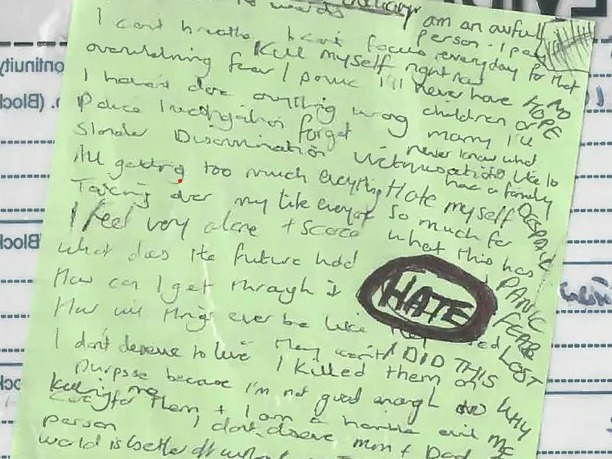 words
am an awful
I cant breathe I cant focus
person. I pay
everyday for that
Kill myself right now
overwhelming fear / panic
I'll never have
NO
HOPE
I haven't done anything wrong
children or
marry I'll
Police investigation forget
never know what
its like to
Slander Discrimination Victimisation
have a family
All getting too much everything
Hate myself
DESPAIR
Taking over my life everyday
so much for
I feel very alone + scared
what this has
what does the future hold
PANIC
HATE
How can I get through it
FEAR
How will things ever be like
LOST
I DID THIS
I don't deserve to live
I killed them on
WHY
purpose because I'm not good enough to
ME
care for them + I am a horrible evil
Killing me
person
I don't deserve mum + Dad
world is better off without
ontinuity
(Block
Block